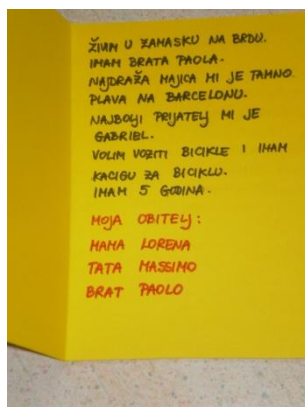 ŽIVIM U ZAMASKU NA BRDU.
IMAM BRATA PAOLA.
NAJDRAŽA MAJICA MI JE TAMNO
PLAVA NA BARCELONU.
NAJBOLJI PRIJATELJ MI JE
GABRIEL.
VOLIM VOZITI BICIKLE I IMAM
KACIGU ZA BICIKLU.
IMAM 5 GODINA.
MOJA OBITELJ:
MAMA LORENA
TATA MASSIMO
BRAT PAOLO